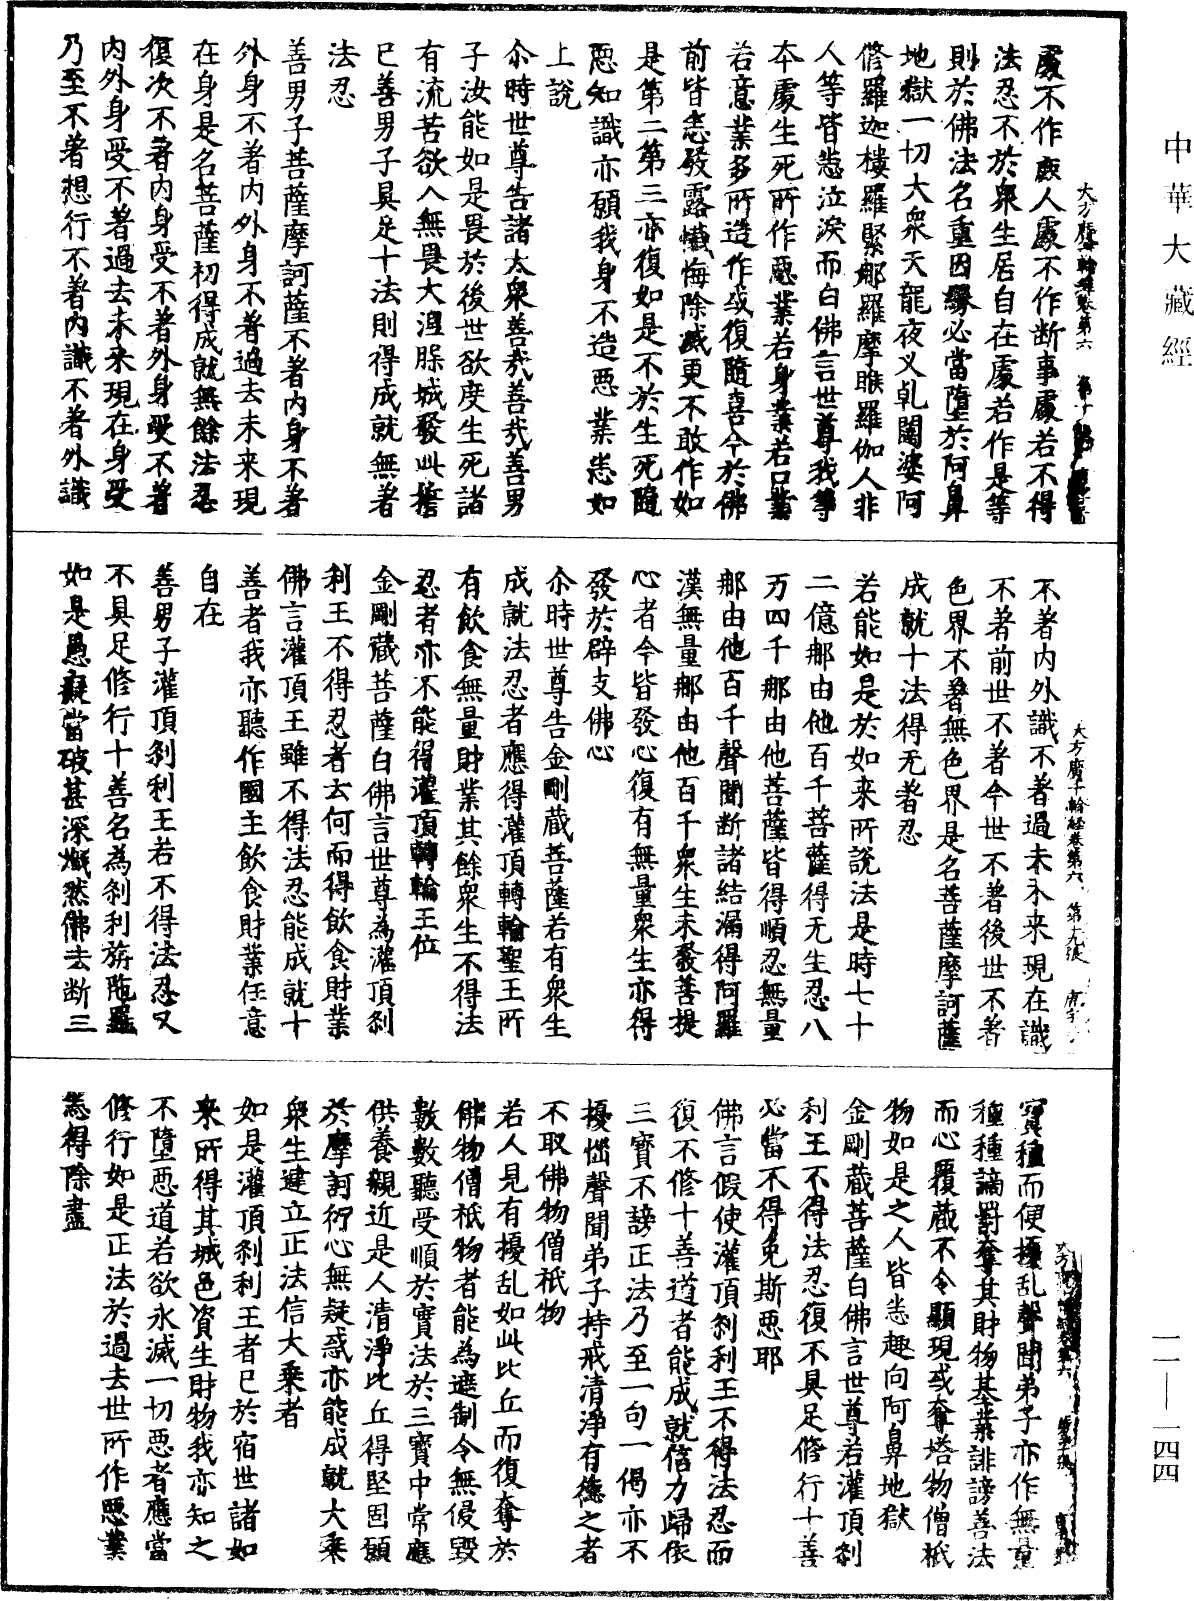 中華大藏經
大方廣十輪經卷第六
處不作厭人處不作断事處若不得
法忍不於衆生居自在處若作是等
則於佛法名重因緣必當墮於阿鼻
地獄一切大衆天龍夜叉乹闥婆阿
脩羅迦樓羅緊那羅摩睺羅伽人非
人等皆悲泣淚而白佛言世尊我等
本處生死所作惡業若身業若口業
若意業多所造作或復隨喜今於佛
前皆悉發露懺悔除滅更不敢作如
是第二第三亦復如是不於生死隨
惡知識亦願我身不造惡業悉如
上說
尒時世尊告諸大衆善哉善哉善男
子汝能如是畏於後世欲度生死諸
有流苦欲入無畏大涅槃城發此誓
已善男子具足十法則得成就無著
法忍
善男子菩薩摩訶薩不著內身不著
外身不著內外身不著過去未來現
在身是名菩薩初得成就無餘法忍
復次不著內身受不著外身受不著
內外身受不著過去未來現在身受
乃至不著想行不著內識不著外識
大方廣十輪經卷第六 第十九張
不著內外識不著過去未來現在識
不著前世不著今世不著後世不著
色界不著無色界是名菩薩摩訶薩
成就十法得无著忍
若能如是於如来所說法是時七十
二億那由他百千菩薩得无生忍八
万四千那由他菩薩皆得順忍無量
那由他百千聲聞断諸結漏得阿羅
漢無量那由他百千衆生未發菩提
心者今皆發心復有無量衆生亦得
發於辟支佛心
尒時世尊告金剛蔵菩薩若有衆生
成就法忍者應得灌頂轉輪聖王所
有飲食無量財業其餘衆生不得法
忍者亦不能得灌頂轉輪王位
金剛蔵菩薩白佛言世尊為灌頂剎
利王不得忍者云何而得飲食財業
佛言灌頂王雖不得法忍能成就十
善者我亦聽作國主飲食財業任意
自在
善男子灌頂剎利王若不得法忍又
不具足修行十善名為剎利旃陁羅
如是愚癡當破甚深熾然佛法断三
寶種而便擾乱聲聞弟子亦作無量
種種謫罰奪其財物基業誹謗善法
而心覆蔵不令顯現或奪塔物僧祇
物如是之人皆悉趣向阿鼻地獄
金剛蔵菩薩白佛言世尊若灌頂剎
利王不得法忍復不具足脩行十善
必當不得免斯惡耶
佛言假使灌頂剎利王不得法忍而
復不脩十善道者能成就信力歸依
三寶不謗正法乃至一句一偈亦不
擾惱聲聞弟子持戒清淨有德之者
不取佛物僧祇物
若人見有擾乱如此比丘而復奪於
佛物僧祇物者能為遮制令無侵毀
數數聽受順於實法於三寶中常應
供養親近是人清淨比丘得堅固願
於摩訶衍心無疑惑亦能成就大乘
衆生建立正法信大乗者
如是灌頂剎利王者已於宿世諸如
来所得其城邑資生財物我亦知之
不墮惡道若欲永滅一切惡者應當
脩行如是正法於過去世所作惡業
悉得除盡
一一—一四四